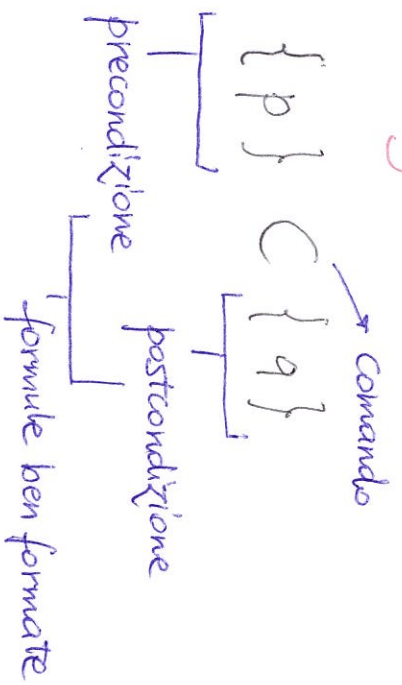 Comando
{p} C {q}
precondizione postcondizione
formule ben formate